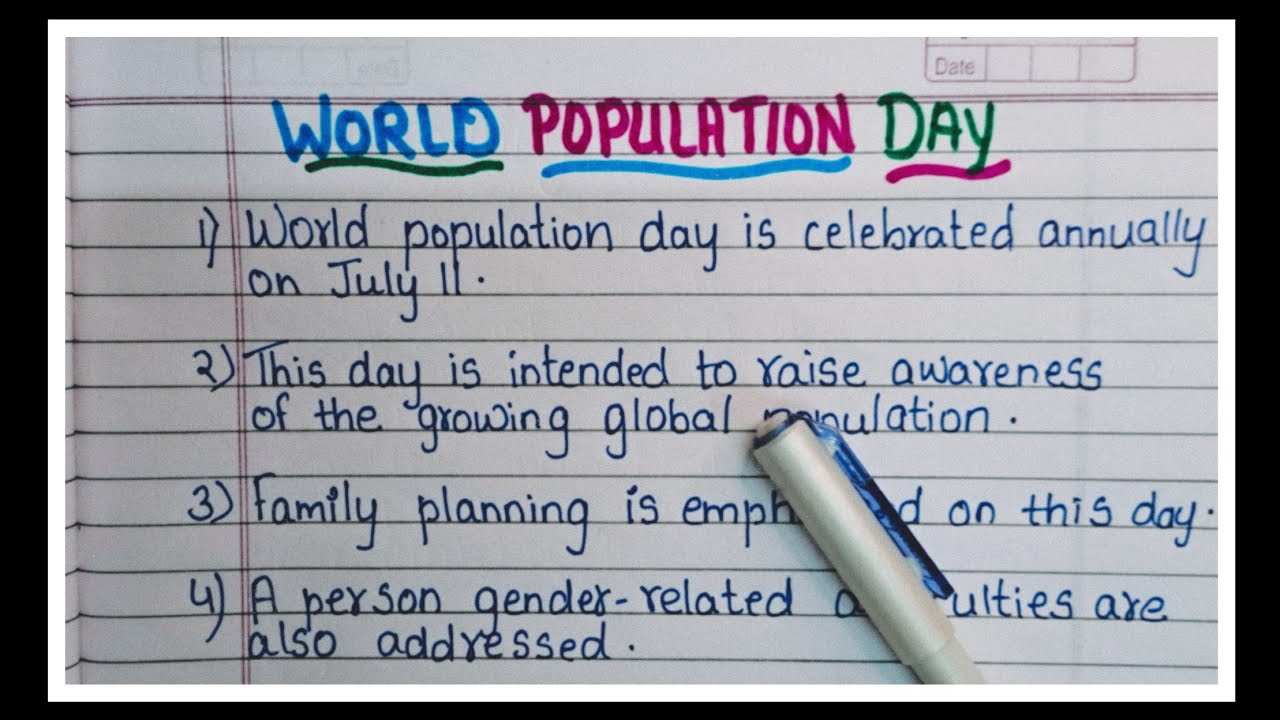 Date
WORLD POPULATION DAY
1) World population day is celebrated annually
on July 11.
2) This day is intended to raise awareness
of the growing global population.
3) Family planning is on this day.
4) A person gender-related are
also addressed.